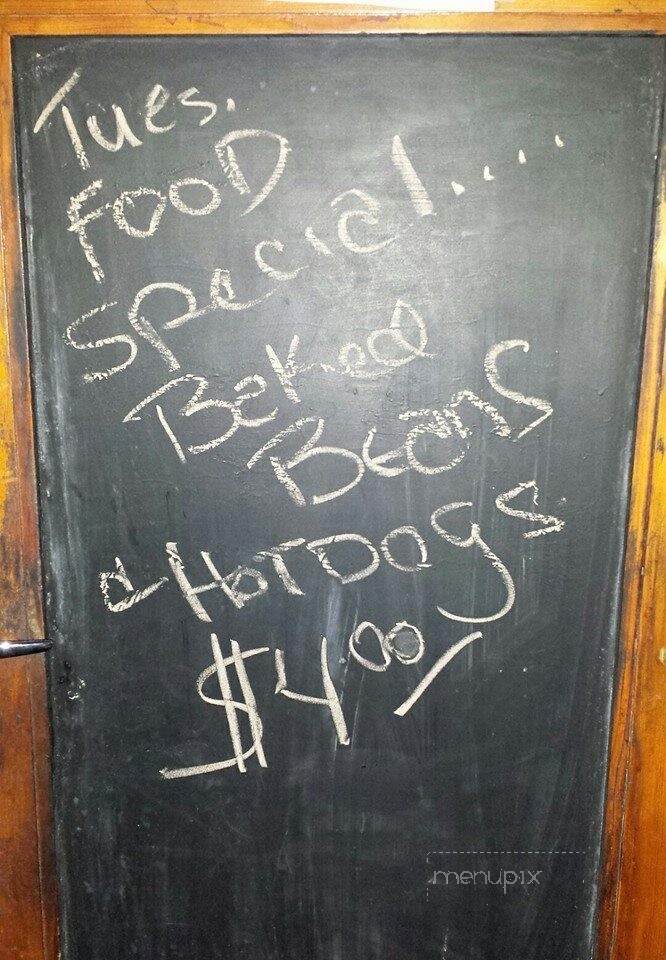 Tues.
FOOD
Special....
Baked
Beans
& HOTDOGS
$4.00
menupix